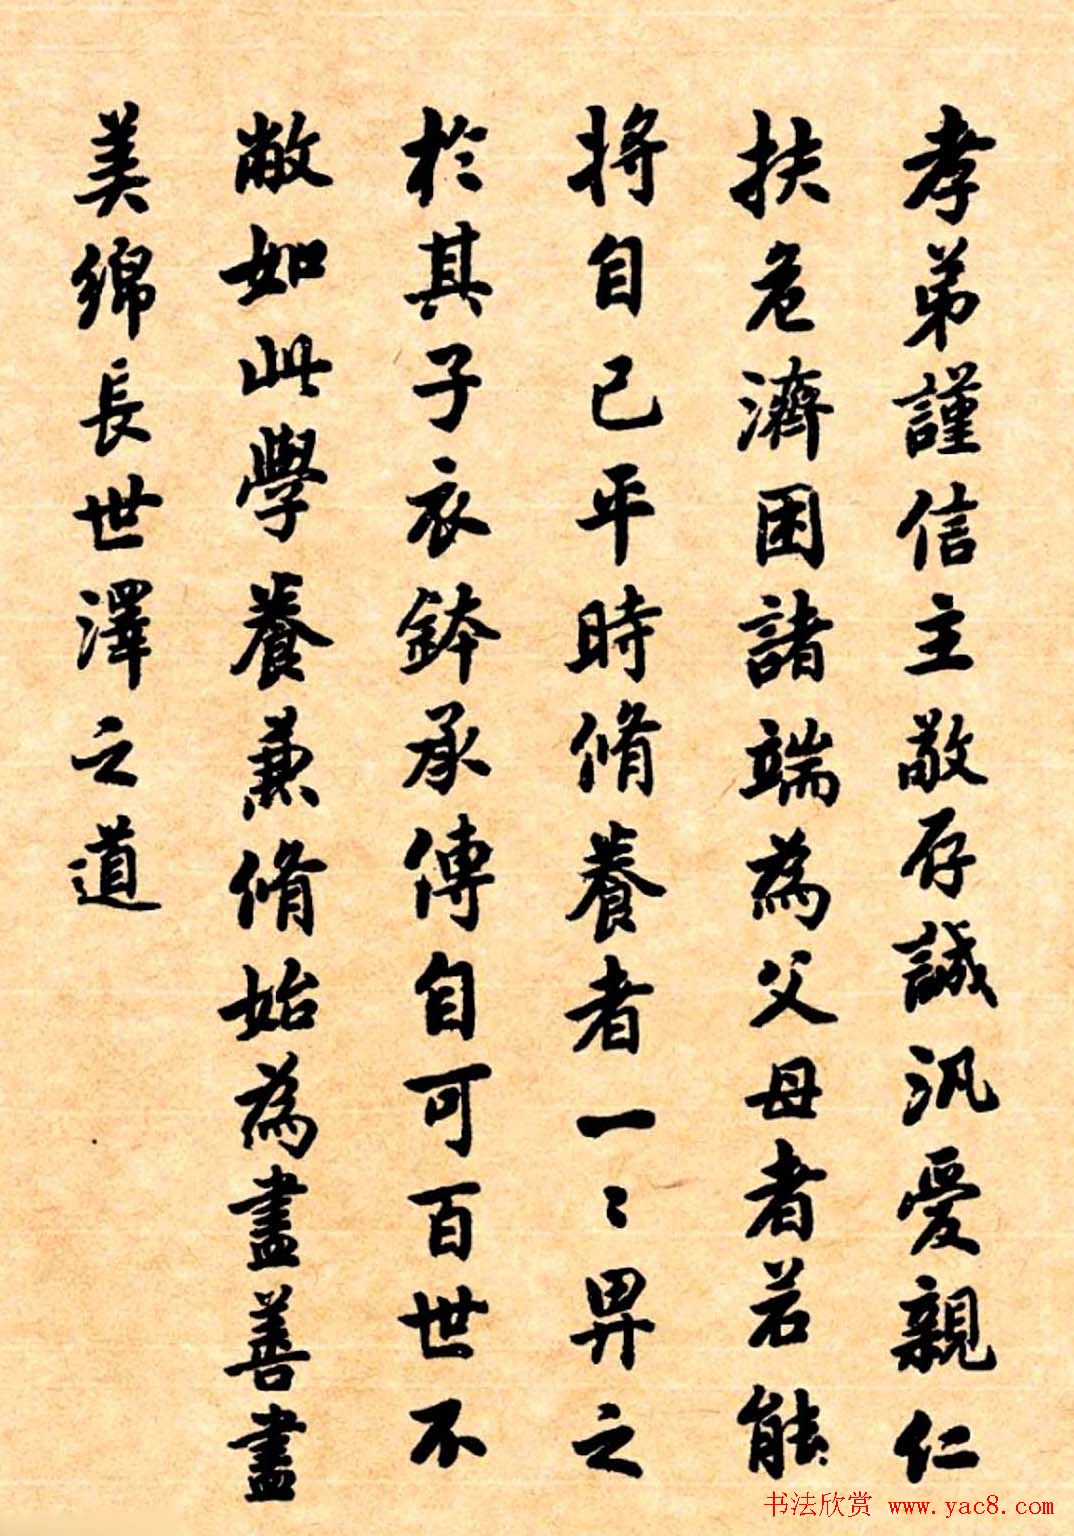 孝弟謹信主敬存誠汎愛親仁
扶危濟困諸端為父母者若能
將自己平時脩養者一〻畀之
於其子衣鉢承傳自可百世不
敝如此學養兼脩始為盡善盡
美綿長世澤之道
书法欣赏 www.yac8.com